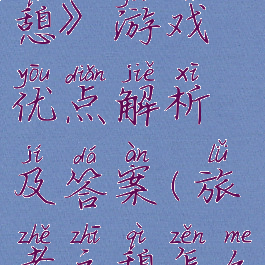 憩》游戏
yōu diǎn jiě xī
优点解析
jí dá àn lǚ
及答案(旅
zhě zhī qì zěn me
者之憩怎么